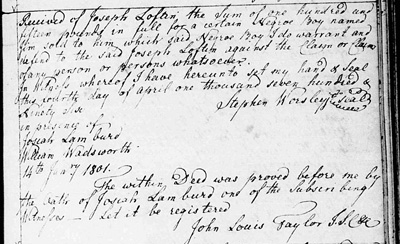 Received of Joseph Loftin, the Sum of one hundred and
fifteen pounds in full for a certain Negroe Boy named
sold to him which said Negroe Boy I do warrant and
defend to the said Joseph Loftin against the Claym or Clayms
of any person or persons whatsoever.
In Witness whereof I have hereunto set my hand & Seal
this fourth day of april one thousand seven hundred &
Ninety Six
Stephen Worsley Seal
in presence of
Josiah Lamburd
William Wadsworth
14th Janry 1801.
The within Deed was proved before me by
the oath of Josiah Lamburd one of the Subscribing
Witnesses — Let it be registered
John Louis Taylor J.S.C.